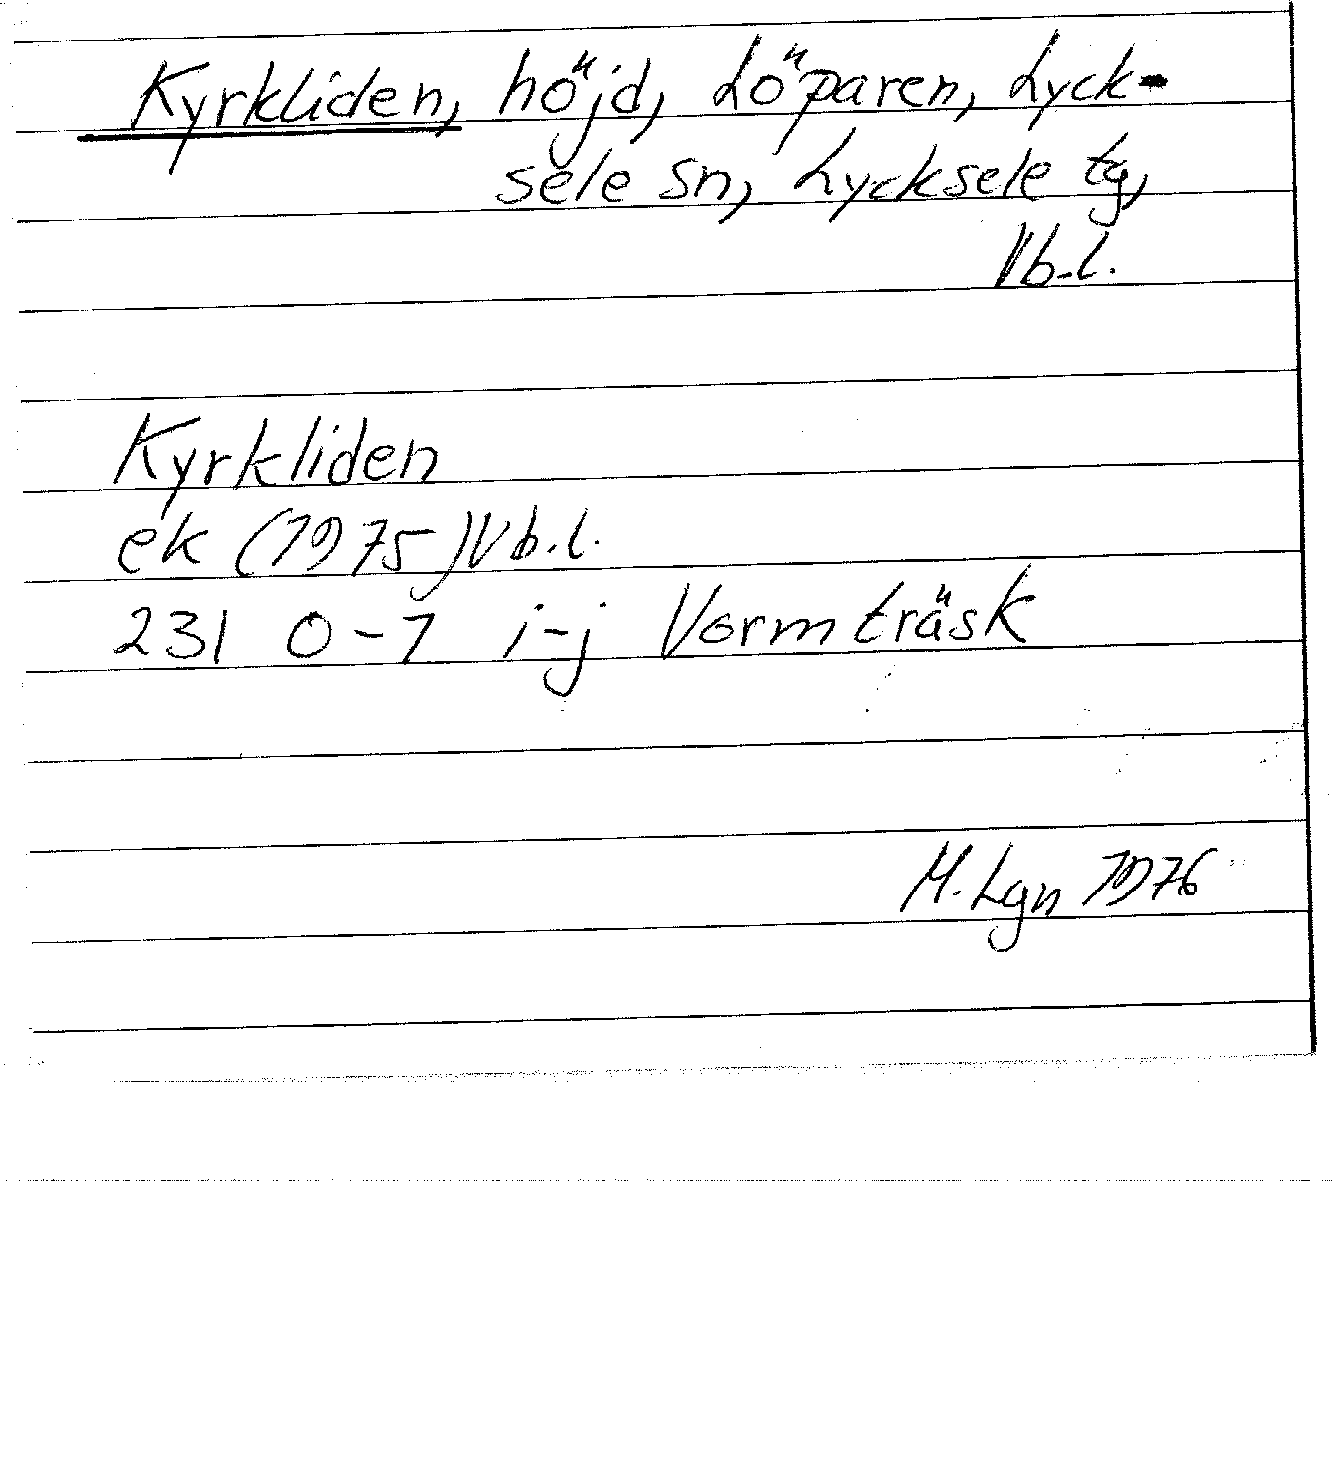 Kyrkliden, höjd, Löparen, Lyck-
sele sn, Lycksele tg,
Vb.l.
Kyrkliden
ek (1975) Vb.l.
231 0-1 i-j Vormträsk
M. Lgn 1976